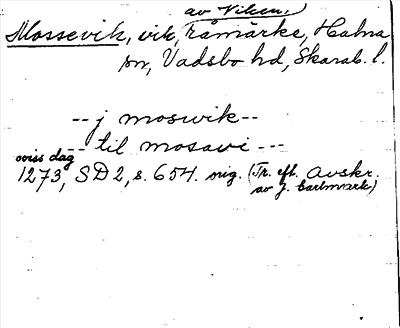 av Viken,
Mossevik, vik, råmärke, Halna
sn, Vadsbo hd, Skarab. l.
-- j moswik --
-- til mosavi ---
oviss dag
1273, SD 2, s. 654. nig. (Tr. eft. Avskr.
av J. Cartmark)